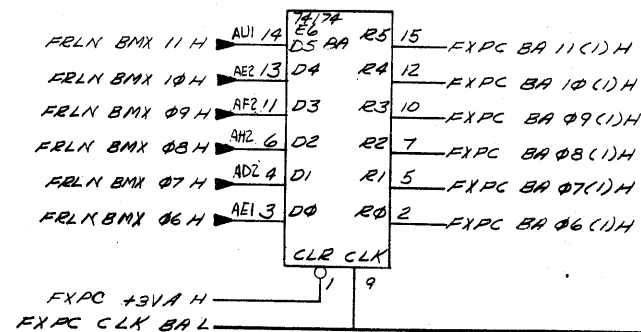 74174
FRLN BMX 11 H AU1 14 E6 R5 15
D5 BA FXPC BA 11(1)H
FRLN BMX 1φ H AE2 13 D4 R4 12 FXPC BA 1φ(1)H
FRLN BMX φ9 H AF2 11 D3 R3 10 FXPC BA φ9(1)H
FRLN BMX φ8 H AH2 6 D2 R2 7 FXPC BA φ8(1)H
FRLN BMX φ7 H AD2 4 D1 R1 5 FXPC BA φ7(1)H
FRLN BMX φ6 H AE1 3 Dφ Rφ 2 FXPC BA φ6(1)H
CLR CLK
1 9
FXPC +3VA H
FXPC CLK BA L